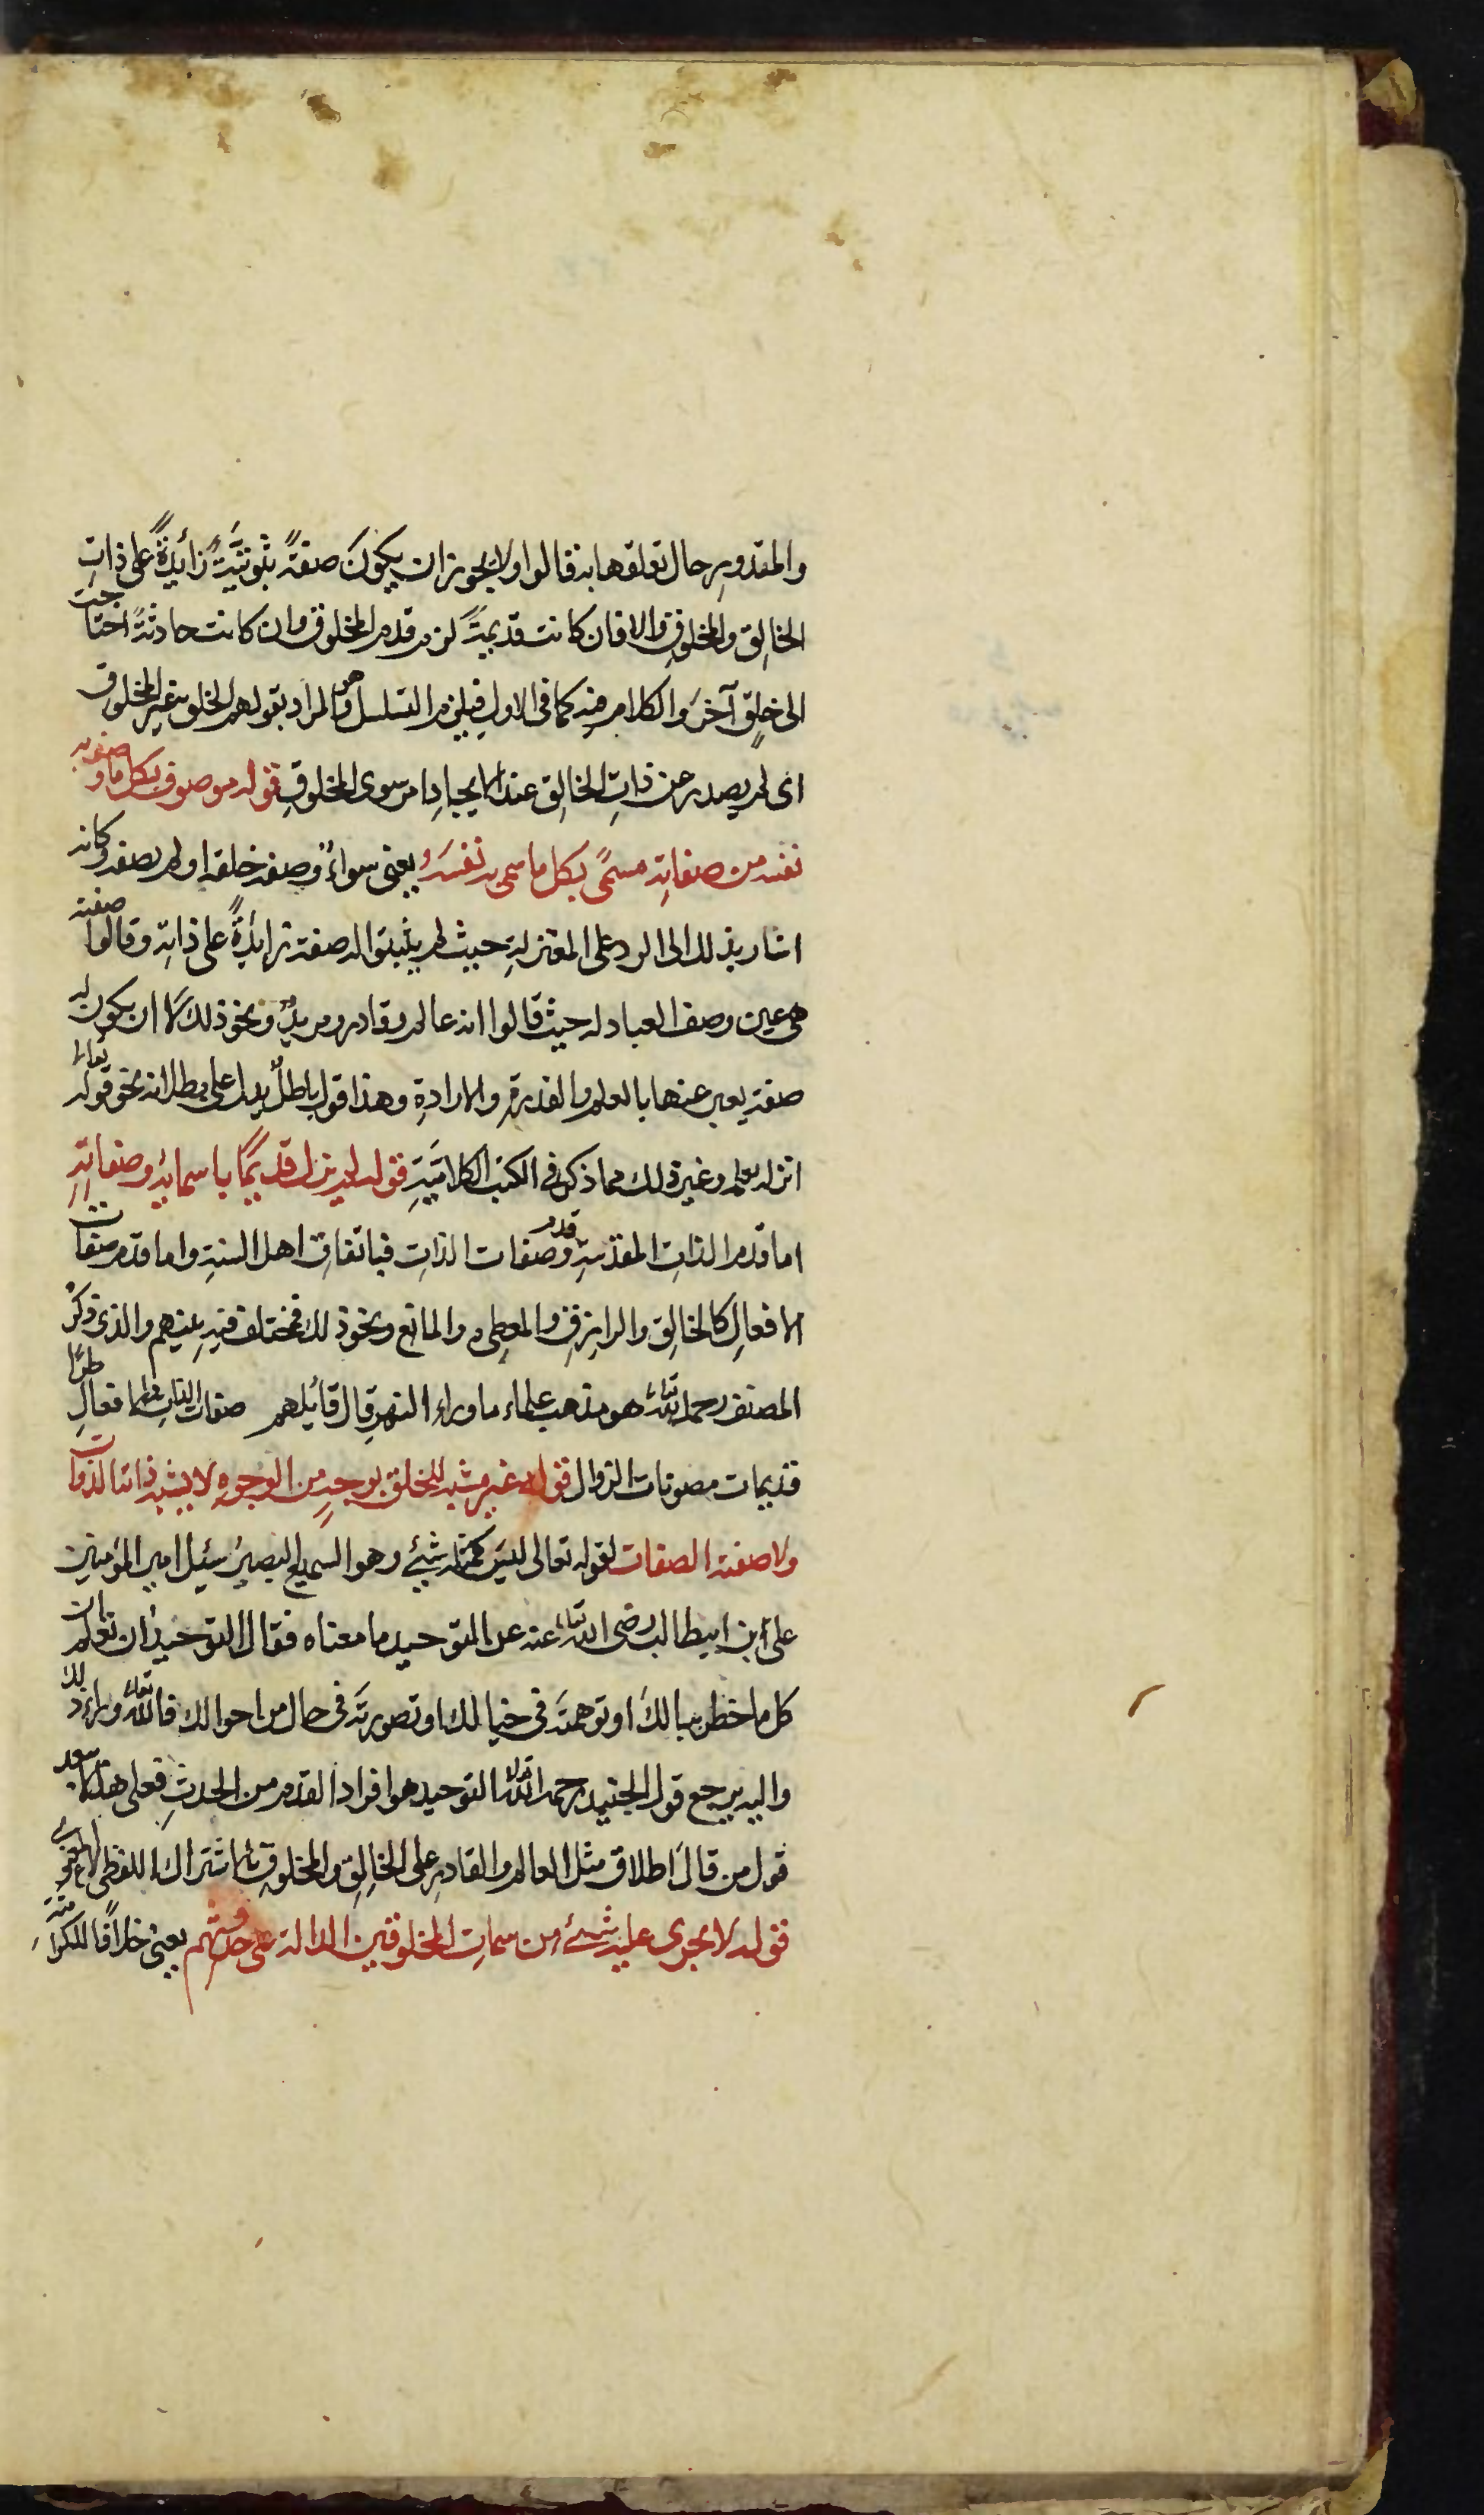 والمقدورِ حال تعلقها به قالوا ولا يجوز ان يكونَ صفةً ثبوتيّةً زائدةً على ذاتِ
الخالِقِ والمخلوقِ والا فان كانت قديمةً لزم قدم المخلوق وان كانت حادثةً احتاجت
الى خلقٍ آخرَ والكلام فيه كما في الاولِ فيلزم التسلسل وهو المراد بقولهم الخلق غير المخلوق
اى لم يصدر عن ذاتِ الخالِق عند الايجادِ امر سوى المخلوقِ قوله موصوف بكل ما وصف به
نفسه من صفاتِه مسمًى بكل ما سمى به نفسَه يعنى سواءٌ وصفه خلقه او لم يصفه وكانه
اشار بذلك الى الرد على المعتزلةِ حيث لم يثبتوا له صفة زائدةً على ذاتِه وقالوا صفته
هى عين وصف العباد له حيث قالوا انه عالم وقادر ومريدٌ ونحو ذلك لا ان يكون له
صفة يعبر عنها بالعلم والقدرةِ والارادةِ وهذا قول باطلٌ يدل على بطلانه نحو قوله تعالى
انزله بعلمه وغير ذلك مما ذكر فى الكتب الكلاميّةِ قوله لم يزل قديمًا باسمائِه وصفاتِهِ
اما قدم الذاتِ المقدسةِ وقدم صفات الذاتِ فباتفاقِ اهل السنةِ واما قدم صفات
الافعالِ كالخالِق والرازِقِ والمعطِى والمانع ونحو ذلك فمختلف فيهِ بينهم والذى ذكرهُ
المصنف رحمه الله تعالى هو مذهب علماء ما وراء النهرِ قال قائلهم صفات الذاتِ والافعالِ طرًا
قديمات مصونات الزوال قوله غير مشبه للخلق بوجهٍ من الوجوهِ لا يشبه ذاته الذوات
ولا صفته الصفات لقوله تعالى ليسَ كمثله شيئ وهو السميع البصيرُ سئِل امير المؤمنين
على ابن ابيطالب رضى الله تعالى عنه عن التوحيد ما معناه فقال التوحيدُ ان تعلم ان
كل ما خطر ببالكَ او توهمتَه فى خيالك او تصورتَه فى حال من احوالك فالله تعالى وراء ذلك
واليه يرجع قول الجنيد رحمه الله التوحيد هو افراد القدم من الحدثِ فعلى هذا لا يبعد
قول من قالَ اطلاق مثل العالم والقادرِ على الخالِقِ والمخلوقِ بالاشتراك اللفظى لا المعنوى
قوله لا يجرى عليه شئ من سماتِ المخلوقين الدالة على حدوثهم يعنى خلافًا للكراميّة